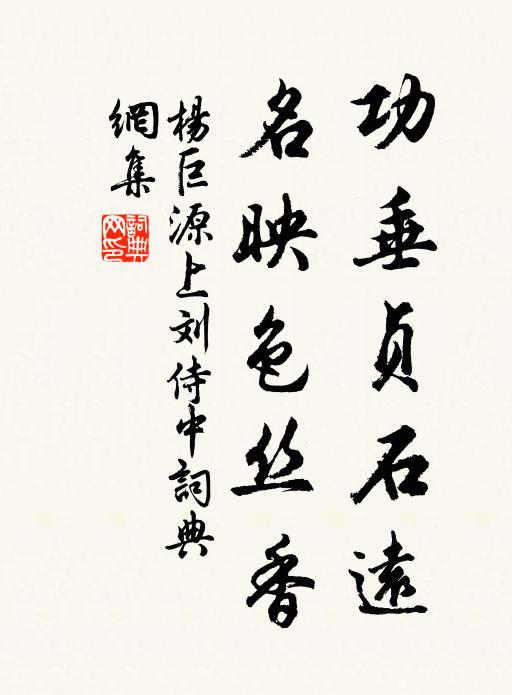 功垂贞石遠
名映色丝香
楊巨源上刘侍中詞典
網集
詞典
网印